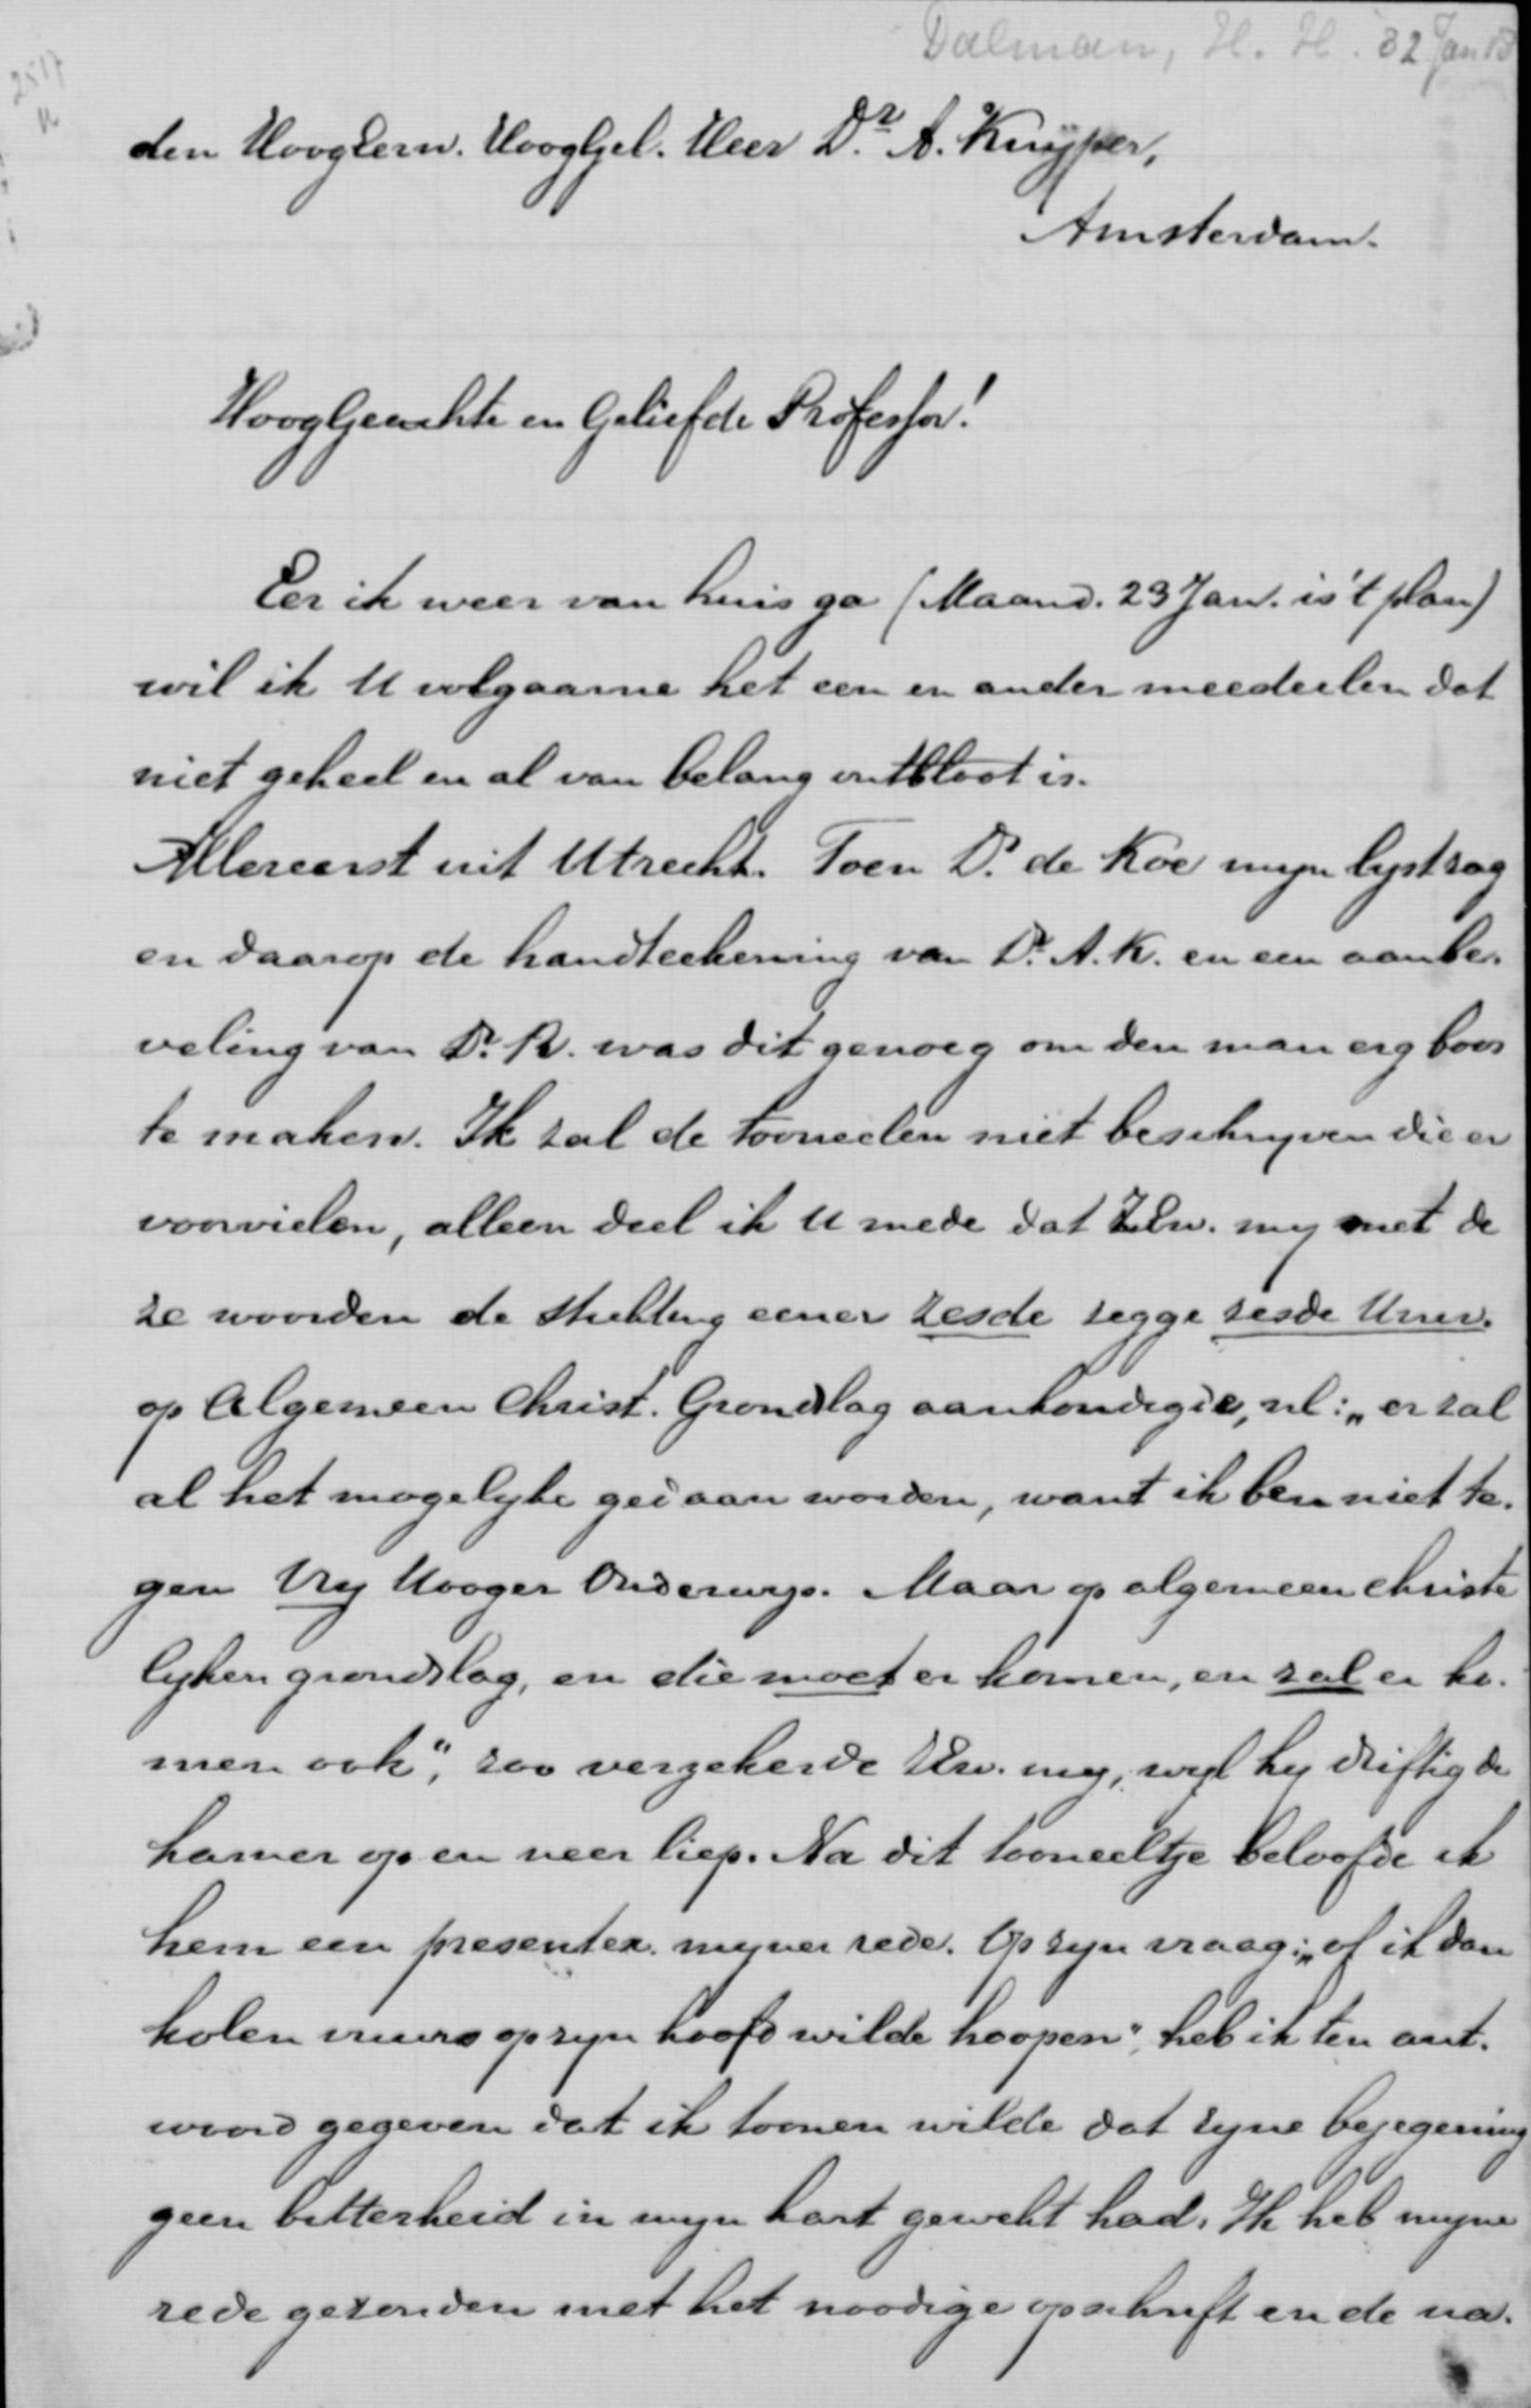 Dalman, H. H. 32 Jan 83
2517
den HoogEerw. HoogGel. Heer Dr. A. Kuÿper,
Amsterdam.
HoogGeachte en Geliefde Professor!
Eer ik weer van huis ga (Maand. 23 Jan. is 't plan)
wil ik U volgaarne het een en ander meedeelen dat
niet geheel en al van belang ontbloot is.
Allereerst uit Utrecht. Toen Dr. de Koe myn lyst zag
en daarop de handteekening van Dr. A. K. en een aanbe-
veling van Dr. R. was dit genoeg om den man erg boos
te maken. Ik zal de tooneelen niet beschryven die er
voorvielen, alleen deel ik U mede dat ZEw. my met de
ze woorden de stichting eener zesde zegge zesde Univ.
op Algemeen Christ. Grondslag aankondigde, nl: „er zal
al het mogelyke gedaan worden, want ik ben niet te-
gen Vry Hooger Onderwys. Maar op algemeen christe
lyken grondslag, en die moet er komen, en zal er ko-
men ook", zoo verzekerde ZEw. my, wyl hy driftig de
kamer op en neer liep. Na dit tooneeltje beloofde ik
hem een presentex. myner rede. Op zyn vraag: „of ik dan
kolen vuurs op zyn hoofd wilde hoopen", heb ik ten ant-
woord gegeven dat ik toonen wilde dat zyne bejegening
geen bitterheid in myn hart gewekt had. Ik heb myne
rede gezonden met het noodige opschrift en de na-